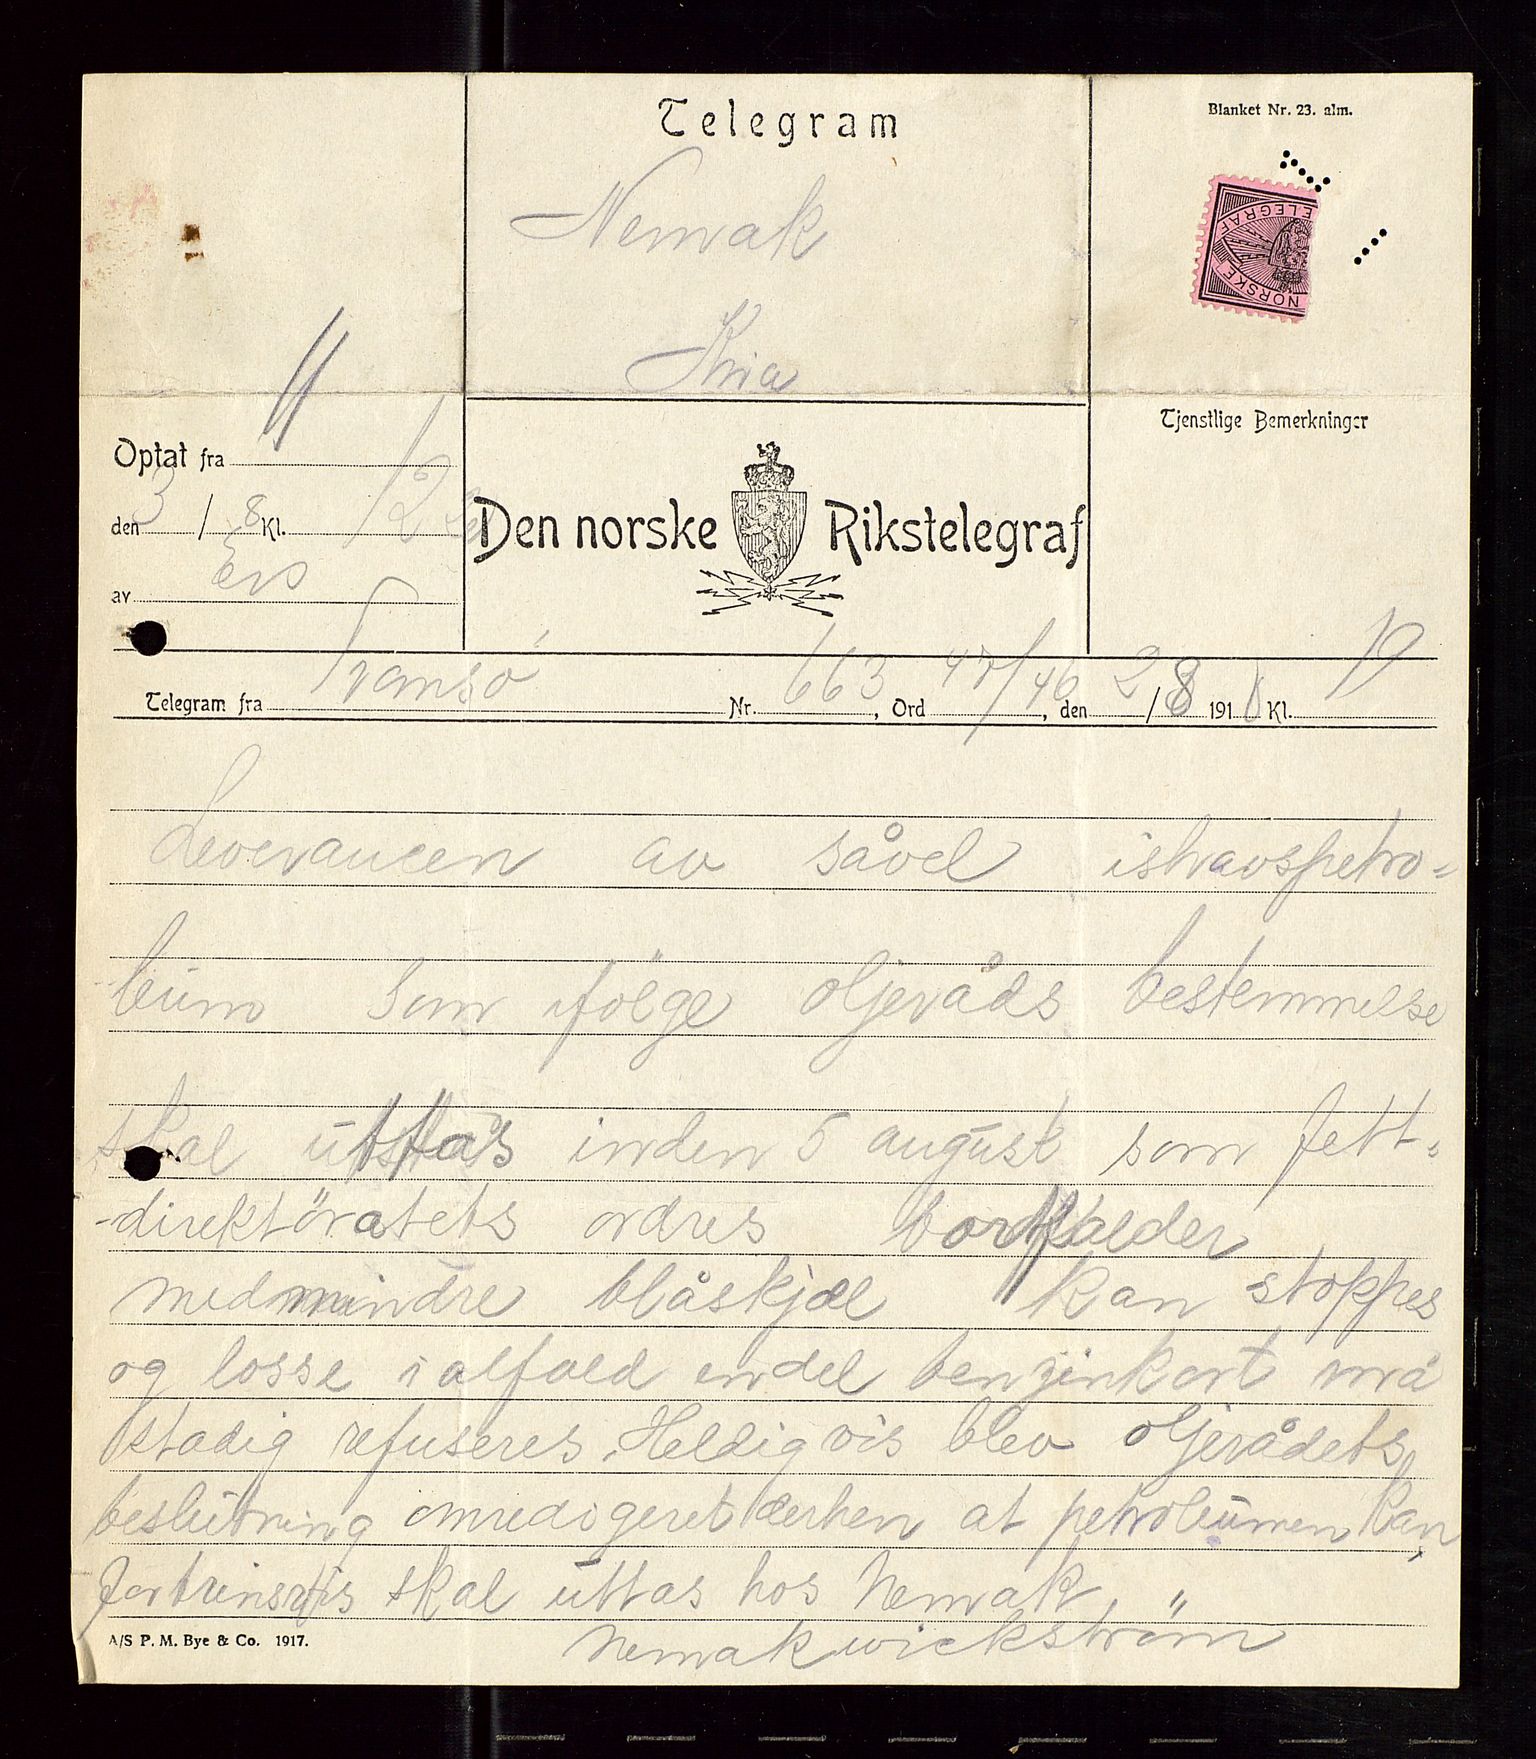 Telegram
Blanket Nr. 23. alm.
Nemak
Kria
NORSKE TELEGRAF
Tjenstlige Bemerkninger
Optat fra
den 3/8 Kl. 12
av
Den norske Rikstelegraf
Telegram fra Tromsö Nr. 663, Ord 47/46, den 2/8 1918 Kl. 19
Leverancen av såvel ishavspetro=
leum som ifölge oljeråds bestemmelse
skal uttas inden 5 august som fett=
-direktöratets ordres bortfalder
medmindre blåskjæl kan stoppes
og losse ialfald endel benzinkort må
stadig refuseres. Heldigvis blev oljerådets
beslutning omredigeret derhen at petroleumen kan
fortrinsvis skal uttas hos Nemak
Nemak wickström
A/S P. M. Bye & Co. 1917.